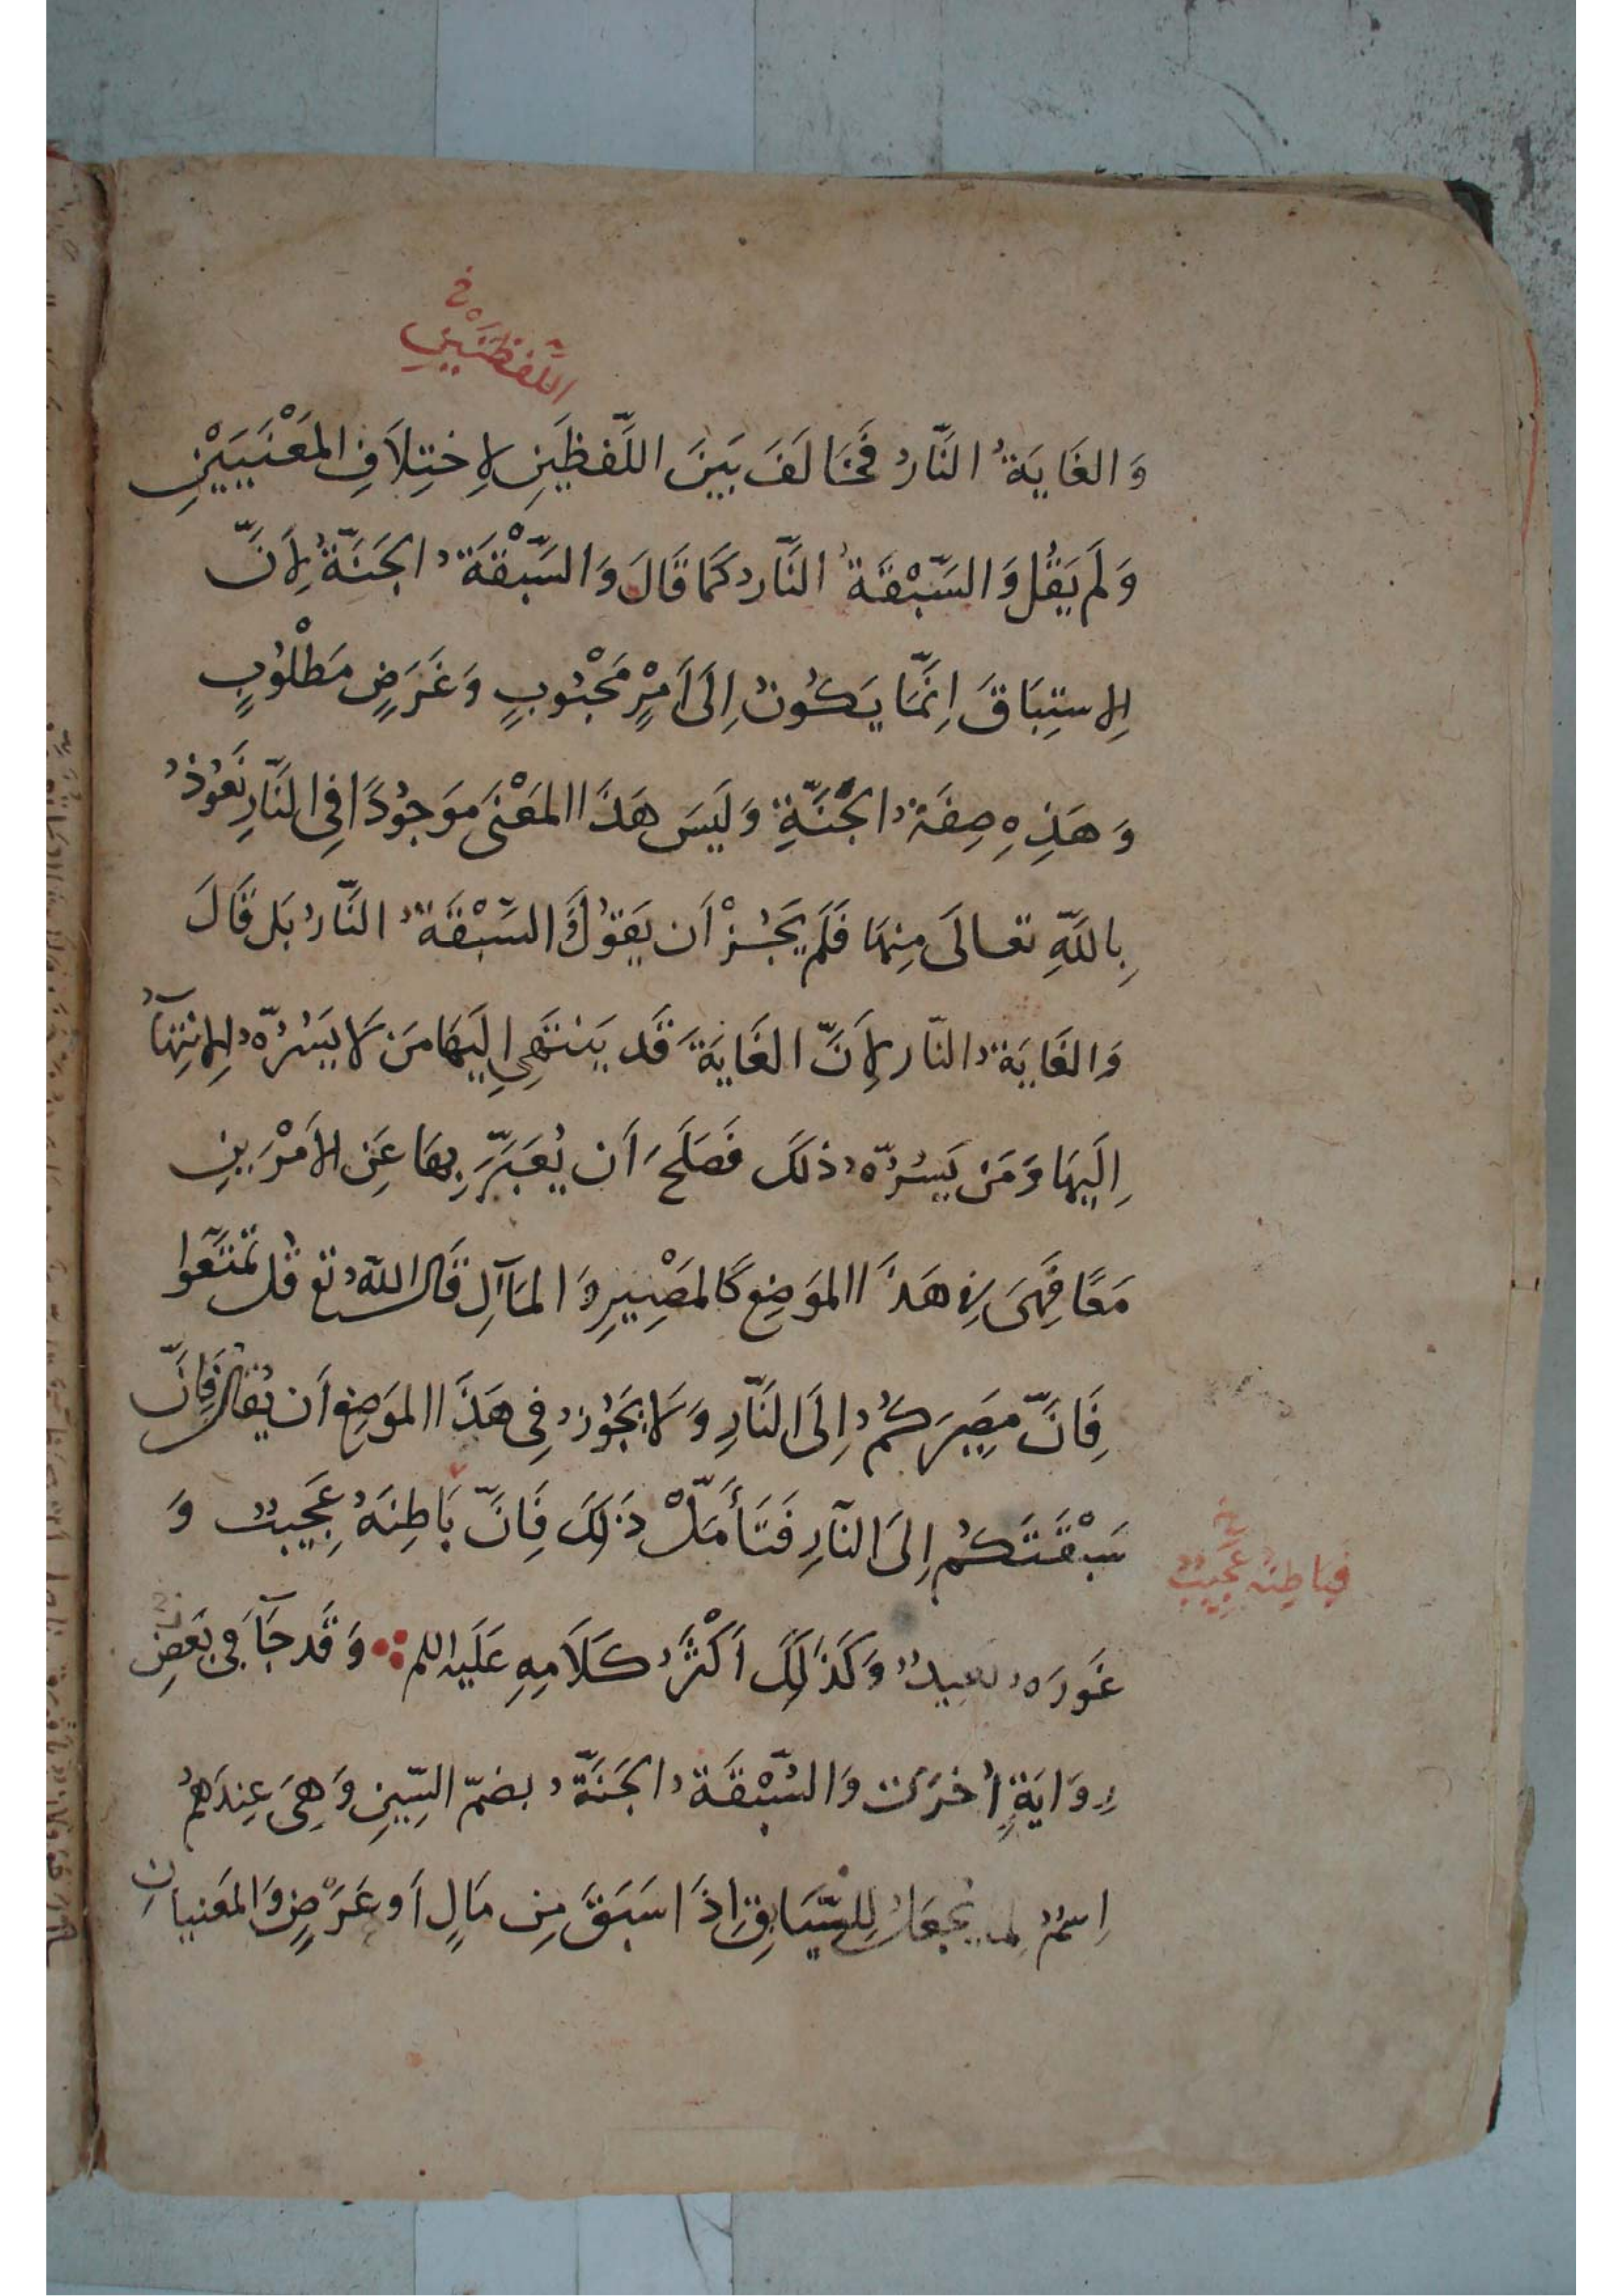 اللَّفْظَتَيْنِ خ
وَالغَايَةُ النَّارُ فَخَالَفَ بَيْنَ اللَّفظَينِ لِاختِلَافِ المَعْنَيَيْنِ
وَلَم يَقُل وَالسَّبْقَةُ النَّارُ كَمَا قَالَ وَالسَّبْقَةُ الجَنَّةُ لِأَنَّ
الِاستِبَاقَ اِنَّمَا يَكُونُ اِلَى اَمْرٍ مَحْبُوبٍ وَغَرَضٍ مَطْلُوبٍ
وَهَذِهِ صِفَةُ الجَنَّةِ وَلَيسَ هَذَا المَعْنَى مَوجُودًا فِى النَّارِ نَعُوذُ
بِاللَّهِ تعالَى مِنهَا فَلَم يَجُزْ أَن يَقُولَ وَالسَّبْقَةُ النَّارُ بَل قَالَ
وَالغَايَةُ النَّار لِأَنَّ الغَايَةَ قَد يَنتَهِى اِلَيهَا مَن لَا يَسُرُّهُ الِانتِهَآءُ
اِلَيهَا وَمَن يَسُرُّهُ ذلَكَ فَصَلَحَ أَن يُعَبَّرَ بِهَا عَنِ الأَمْرَينِ
مَعًا فَهِىَ فِى هَذَا المَوضِعِ كَالمَصِيرِ وَالمَآلِ قَالَ اللَّهُ تع قُل تَمَتَّعُوا
فَاِنَّ مَصِيرَكُم اِلَى النَّارِ وَلَا يَجُوزُ فِى هَذَا المَوضِعِ أَن يُقَالَ فَاِنَّ
سَبْقَتَكُم اِلَى النَّارِ فَتَأَمَّلْ ذَلِكَ فَاِنَّ بَاطِنَهُ عَجِيبٌ وَ
فَبَاطِنُهُ عَجِيبٌ خ
غَورَهُ بَعِيدٌ وَكَذَلِكَ أَكْثَرُ كَلَامِهِ عَلَيهِ اللم وَقَد جَآءَ فِى بَعضِ
رِوَايَةٍ أُخرَى وَالسُّبْقَةُ الجَنَّةُ بضمّ السِّينِ وَهِىَ عِندَهُم
اِسمٌ لِمَا يُجعَلُ لِلسَّابِقِ اِذَا سَبَقَ مِن مَالٍ أَو عَرَضٍ وَالمَعنَيانِ